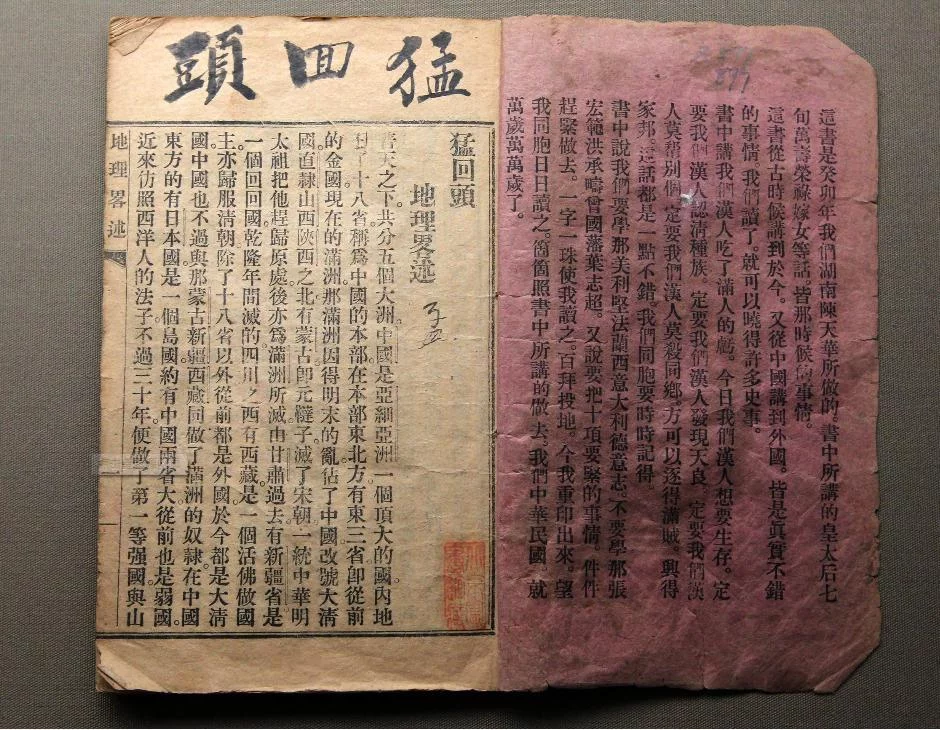 2576
577
這書是癸卯年我們湖南陳天華所做的。書中所講的皇太后七
旬萬壽榮祿嫁女等話皆那時候的事情。
這書從古時候講到於今。又從中國講到外國。皆是眞實不錯
的事情。我們讀了。就可以曉得許多史事。
書中講我們漢人吃了滿人的虧。今日我們漢人想要生存。定
要我們漢人認清種族。定要我們漢人發現天良。定要我們漢
人莫幫別個。定要我們漢人莫殺同鄉。方可以逐得滿賊。興得
家邦。這話都是一點不錯。我們同胞要時時記得
書中說我們要學那美利堅法蘭西意大利德意志。不要學那張
宏範洪承疇曾國藩葉志超。又說要把十項要緊的事情。件件
趕緊做去。一字一珠使我讀之。百拜投地。今我重印出來。望
我同胞日日讀之。箇箇照書中所講的做去。我們中華民國就
萬歲萬萬歲了。
猛回頭
猛回頭
地理畧述
普天之下。共分五個大洲。中國是亞細亞洲一個頂大的國。內地
有十八省。稱爲中國的本部。在本部東北方有東三省。卽從前
的金國。現在的滿洲。那滿洲因得明末的亂。佔了中國。改號大清
國。直隸山西陝西之北有蒙古。卽元韃子滅了宋朝一統中華。明
太祖把他趕歸原處。後亦爲滿洲所滅。由甘肅過去有新疆省。是
一個回回國。乾隆年間滅的。四川之西有西藏。是一個活佛做國
主。亦歸服清朝。除了十八省以外。從前都是外國。於今都是大清
國。中國也不過與那蒙古新疆西藏同做了滿洲的奴隸。在中國
東方的有日本國。是一個島國。約有中國兩省大。從前也是弱國。
近來仿照西洋人的法子。不過三十年。便做了第一等强國。與山
地理畧述